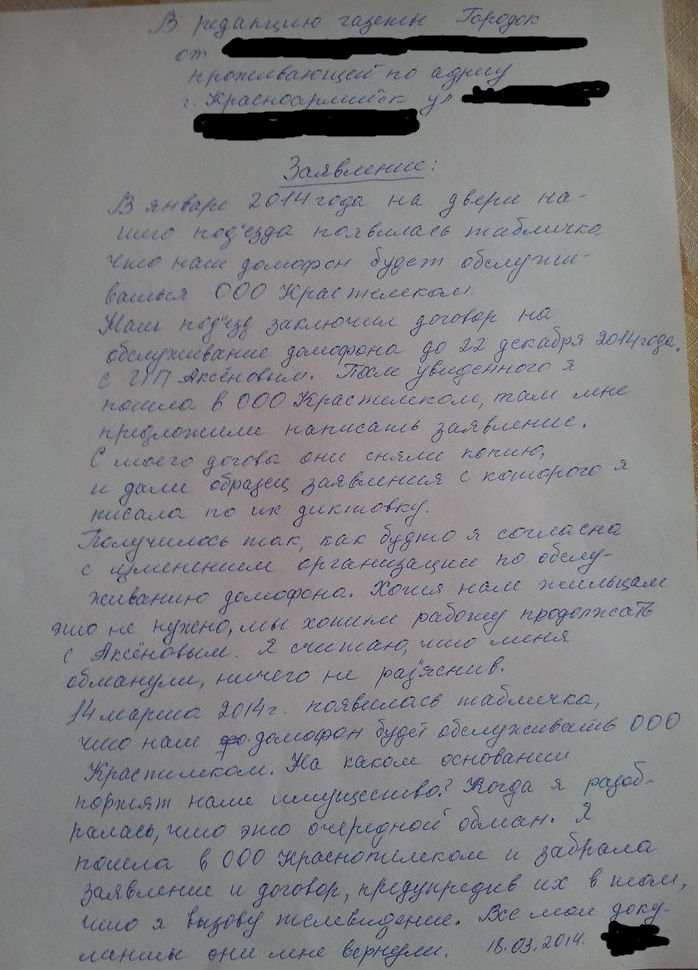 В редакцию газеты Городок
от
проживающей по адресу
г. Красноармейск ул
Заявление:
В январе 2014 года на двери на-
шего под'езда появилась табличка
что наш домофон будет обслужи-
ваться ООО Крастелеком.
Наш под'езд заключил договор на
обслуживание домофона до 22 декабря 2014 года.
с ИП Аксёновым. После увиденного я
пошла в ООО Крастелеком, там мне
предложили написать заявление.
С моего догова они сняли копию,
и дали образец заявления с которого я
писала по их диктовку.
Получилось так, как будто я согласна
с изменением организации по обслу-
живанию домофона. Хотя нам жильцам
это не нужно, мы хотим работу продолжать
с Аксёновым. Я считаю, что меня
обманули, ничего не раз'яснив.
14 марта 2014 г. появилась табличка,
что наш домофон будет обслуживать ООО
Крастелеком. На каком основании
портят наше имущество? Когда я разоб-
ралась, что это очередной обман. Я
пошла в ООО Краснотелеком и забрала
заявление и договор, предупредив их в том,
что я вызову телевидение. Все мои доку-
менты они мне вернули. 18.03.2014.